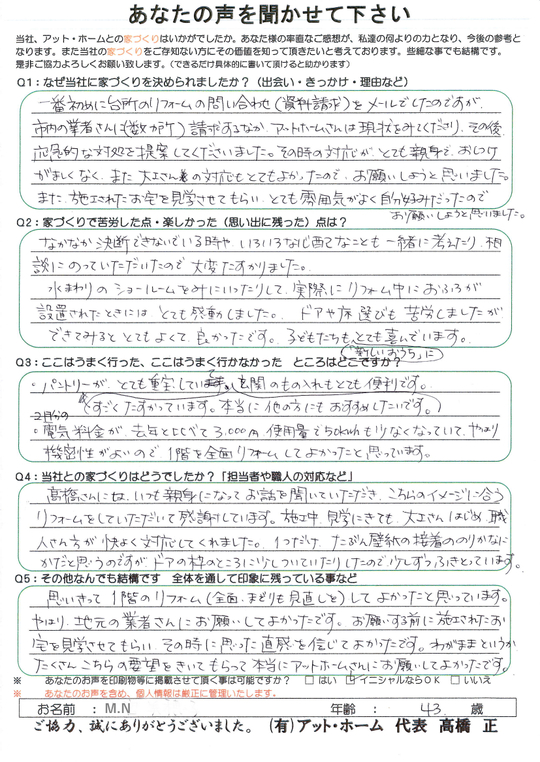 あなたの声を聞かせて下さい
当社、アット・ホームとの家づくりはいかがでしたか。あなた様の率直なご感想が、私達の何よりの力となり、今後の参考と
なります。また当社の家づくりをご存知ない方にその価値を知って頂きたいと考えております。些細な事でも結構です。
是非ご協力よろしくお願い致します。（できるだけ具体的に書いて頂けると助かります）
Q1：なぜ当社に家づくりを決められましたか？（出会い・きっかけ・理由など）
一番初めに台所のリフォームの問い合わせ（資料請求）をメールでしたのですが、
市内の業者さんも（数か所）請求するなか、アットホームさんは現状をみてくださり、その後
応急的な対処を提案してくださいました。その時の対応が、とても親身で、おしつけ
がましくなく、また大工さんの対応もとてもよかったので、お願いしようと思いました。
また、施工されたお宅を見学させてもらい、とても雰囲気がよく自分好みだったので
お願いしようと思いました。
Q2：家づくりで苦労した点・楽しかった（思い出に残った）点は？
なかなか決断できないでいる時や、いろいろな心配なことも一緒に考えたり、相
談にのっていただいたので大変たすかりました。
水まわりのショールームをみにいったりして、実際にリフォーム中におふろが
設置されたときにはとても感動しました。ドアや床選びも苦労しましたが
できてみるととてもよくて、良かったです。子どもたちもとても喜んでいます。
「新しいおうち」に
Q3：ここはうまく行った、ここはうまく行かなかった　ところはどこですか？
・パントリーが、とても重宝していて、台所のものいれもとても便利です。
（すごくたすかっています。本当に他の方にもおすすめしたいです。）
2月分の
・電気料金が、去年と比べて3,000円、使用量で50kwhも少なくなっていて、やはり
機密性がよいので1階を全面リフォームしてよかったと思っています。
Q4：当社との家づくりはどうでしたか？「担当者や職人の対応など」
高橋さんには、いつも親身になってお話を聞いていただき、こちらのイメージに合う
リフォームをしていただいて感謝しています。施工中、見学にきても、大工さんはじめ、職
人さん方が快よく対応してくれました。1つだけ、たぶん壁紙の接着ののりかなに
かだと思うのですが、ドアの枠のところに少しついていたりしたので、少しずつふきとっています。
Q5：その他なんでも結構です　全体を通して印象に残っている事など
思いきって1階のリフォーム（全面、まどりも見直しを）してよかったと思っています。
やはり、地元の業者さんにお願いしてよかったです。お願いする前に施工されたお
宅を見学させてもらい、その時に思った直感を信じてよかったです。わがままというか
たくさんこちらの要望をきいてもらって本当にアットホームさんにお願いしてよかったです。
※　あなたのお声を印刷物等に掲載させて頂く事は可能ですか？　□ はい　☑イニシャルならOK　□ いいえ
※　あなたのお声を含め、個人情報は厳正に管理いたします。
お名前：M.N　年齢：43 歳
ご協力、誠にありがとうございました。（有）アット・ホーム　代表　高橋　正